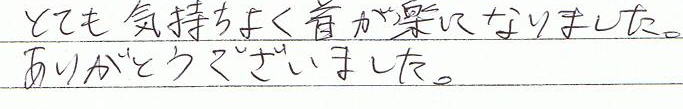 とても気持ちよく首が楽になりました。
ありがとうございました。